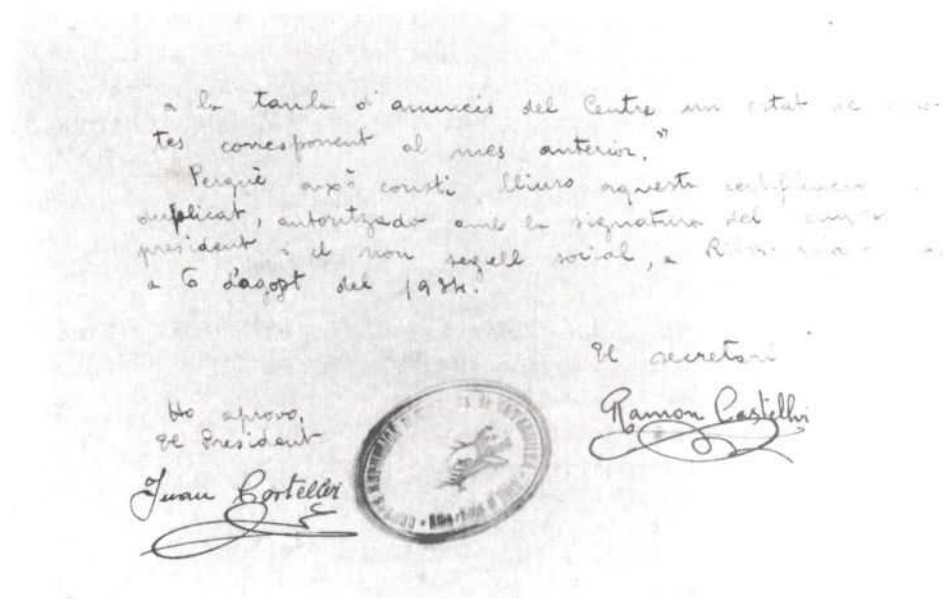 a la taula d'anuncis del Centre un estat de
tes corresponent al mes anterior."
Perquè això consti lliuro aquesta certificació
duplicat, autoritzada amb la signatura del
president i el nou segell social, a
a 6 d'agost del 1934.
El secretari
Ramon Castellvi
Ho aprovo,
El President
Juan Castellvi